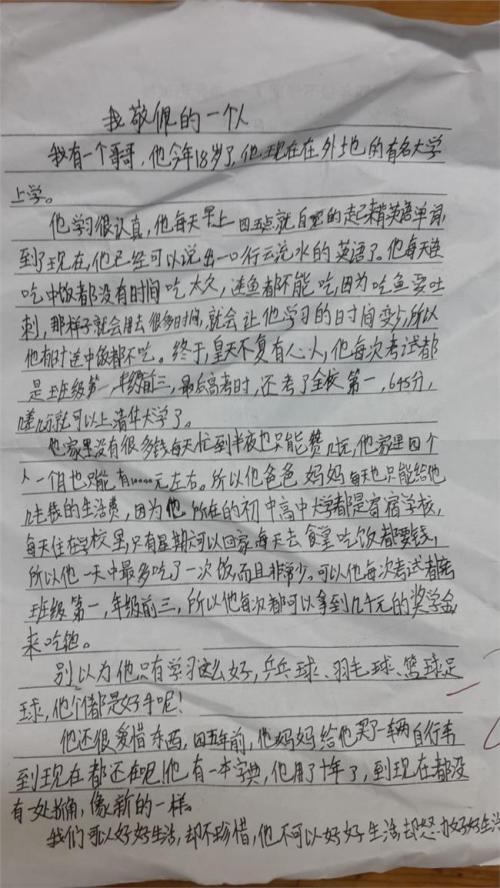 我敬佩的一个人
我有一个哥哥，他今年18岁了，他现在在外地的有名大学
上学。
他学习很认真，他每天早上四五点就自觉的起来背英语单词，
到了现在，他已经可以说出一口行云流水的英语了。他每天连
吃中饭都没有时间吃太久，连鱼都不能吃，因为吃鱼要吐
刺，那样子就会用去很多时间，就会让他学习的时间变少，所以
他有时连中饭都不吃。终于，皇天不复有心人，他每次考试都
是班级第一，年级前三，最后高考时，还考了全校第一，645分，
差几分就可以上清华大学了。
他家里没有很多钱每天忙到半夜也只能赞几元，他家里四个
人一个月也只能有10000元左右。所以他爸爸妈妈每天也只能给他
几十钱的生活费，因为他所在的初中高中大学都是寄宿学校，
每天住在学校里，只有星期天可以回家，每天去食堂吃饭都要钱，
所以他一天中最多吃了一次饭，而且非常少。可以他每次考试都
班级第一，年级前三，所以他每次都可以拿到几千元的奖学金
来吃饱。
别以为他只有学习这么好，乒乓球、羽毛球、篮球足
球，他个个都是好手呢！
他还很爱惜东西，四五年前，他妈妈给他买了一辆自行车
到现在都还在呢！他有一本字典，他用了十年了，到现在都没
有一处捅，像新的一样。
我们可以好好生活，却不珍惜，他不可以好好生活却努力好好生活